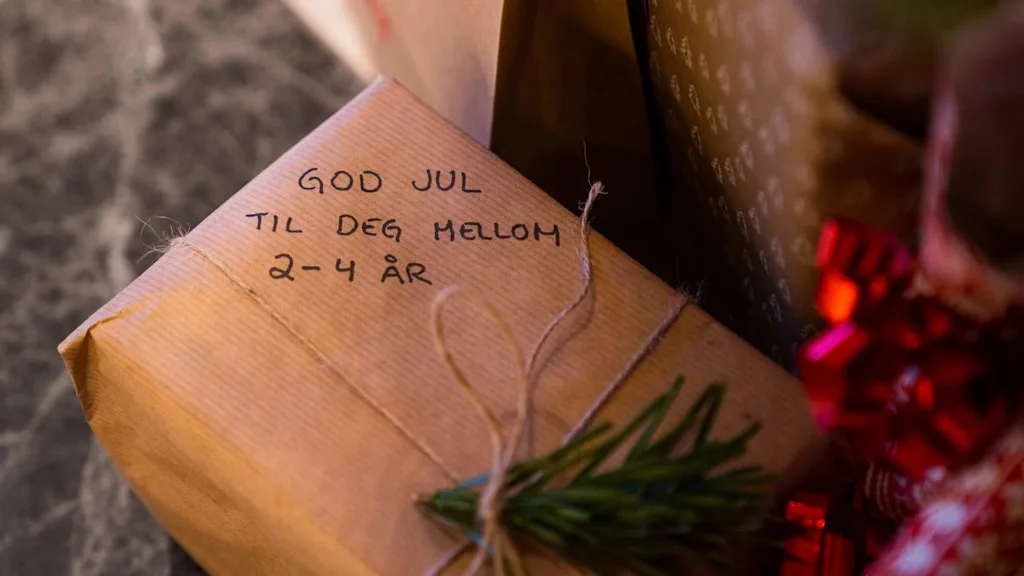 GOD JUL
TIL DEG MELLOM
2-4 ÅR